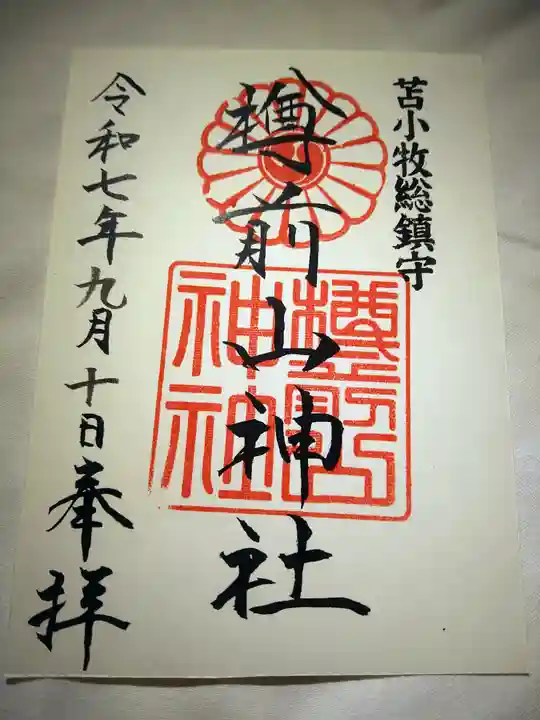 苫小牧総鎮守
樽前山神社
令和七年九月十日奉拝
樽前山神社